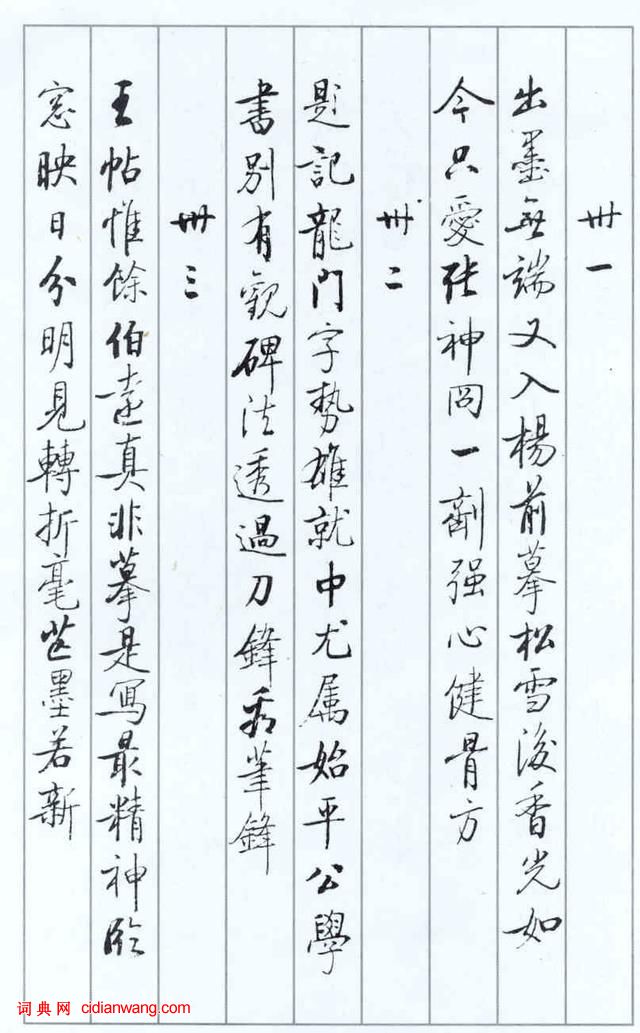 卅一
出墨無端又入楊前摹松雪後香光如
今只愛張神冏一劑强心健骨方
卅二
題記龍門字勢雄就中尤属始平公學
書別有觀碑法透過刀鋒看筆鋒
卅三
王帖惟餘伯遠真非摹是寫最精神臨
窓映日分明見轉折毫芒墨若新
词典网 cidianwang.com